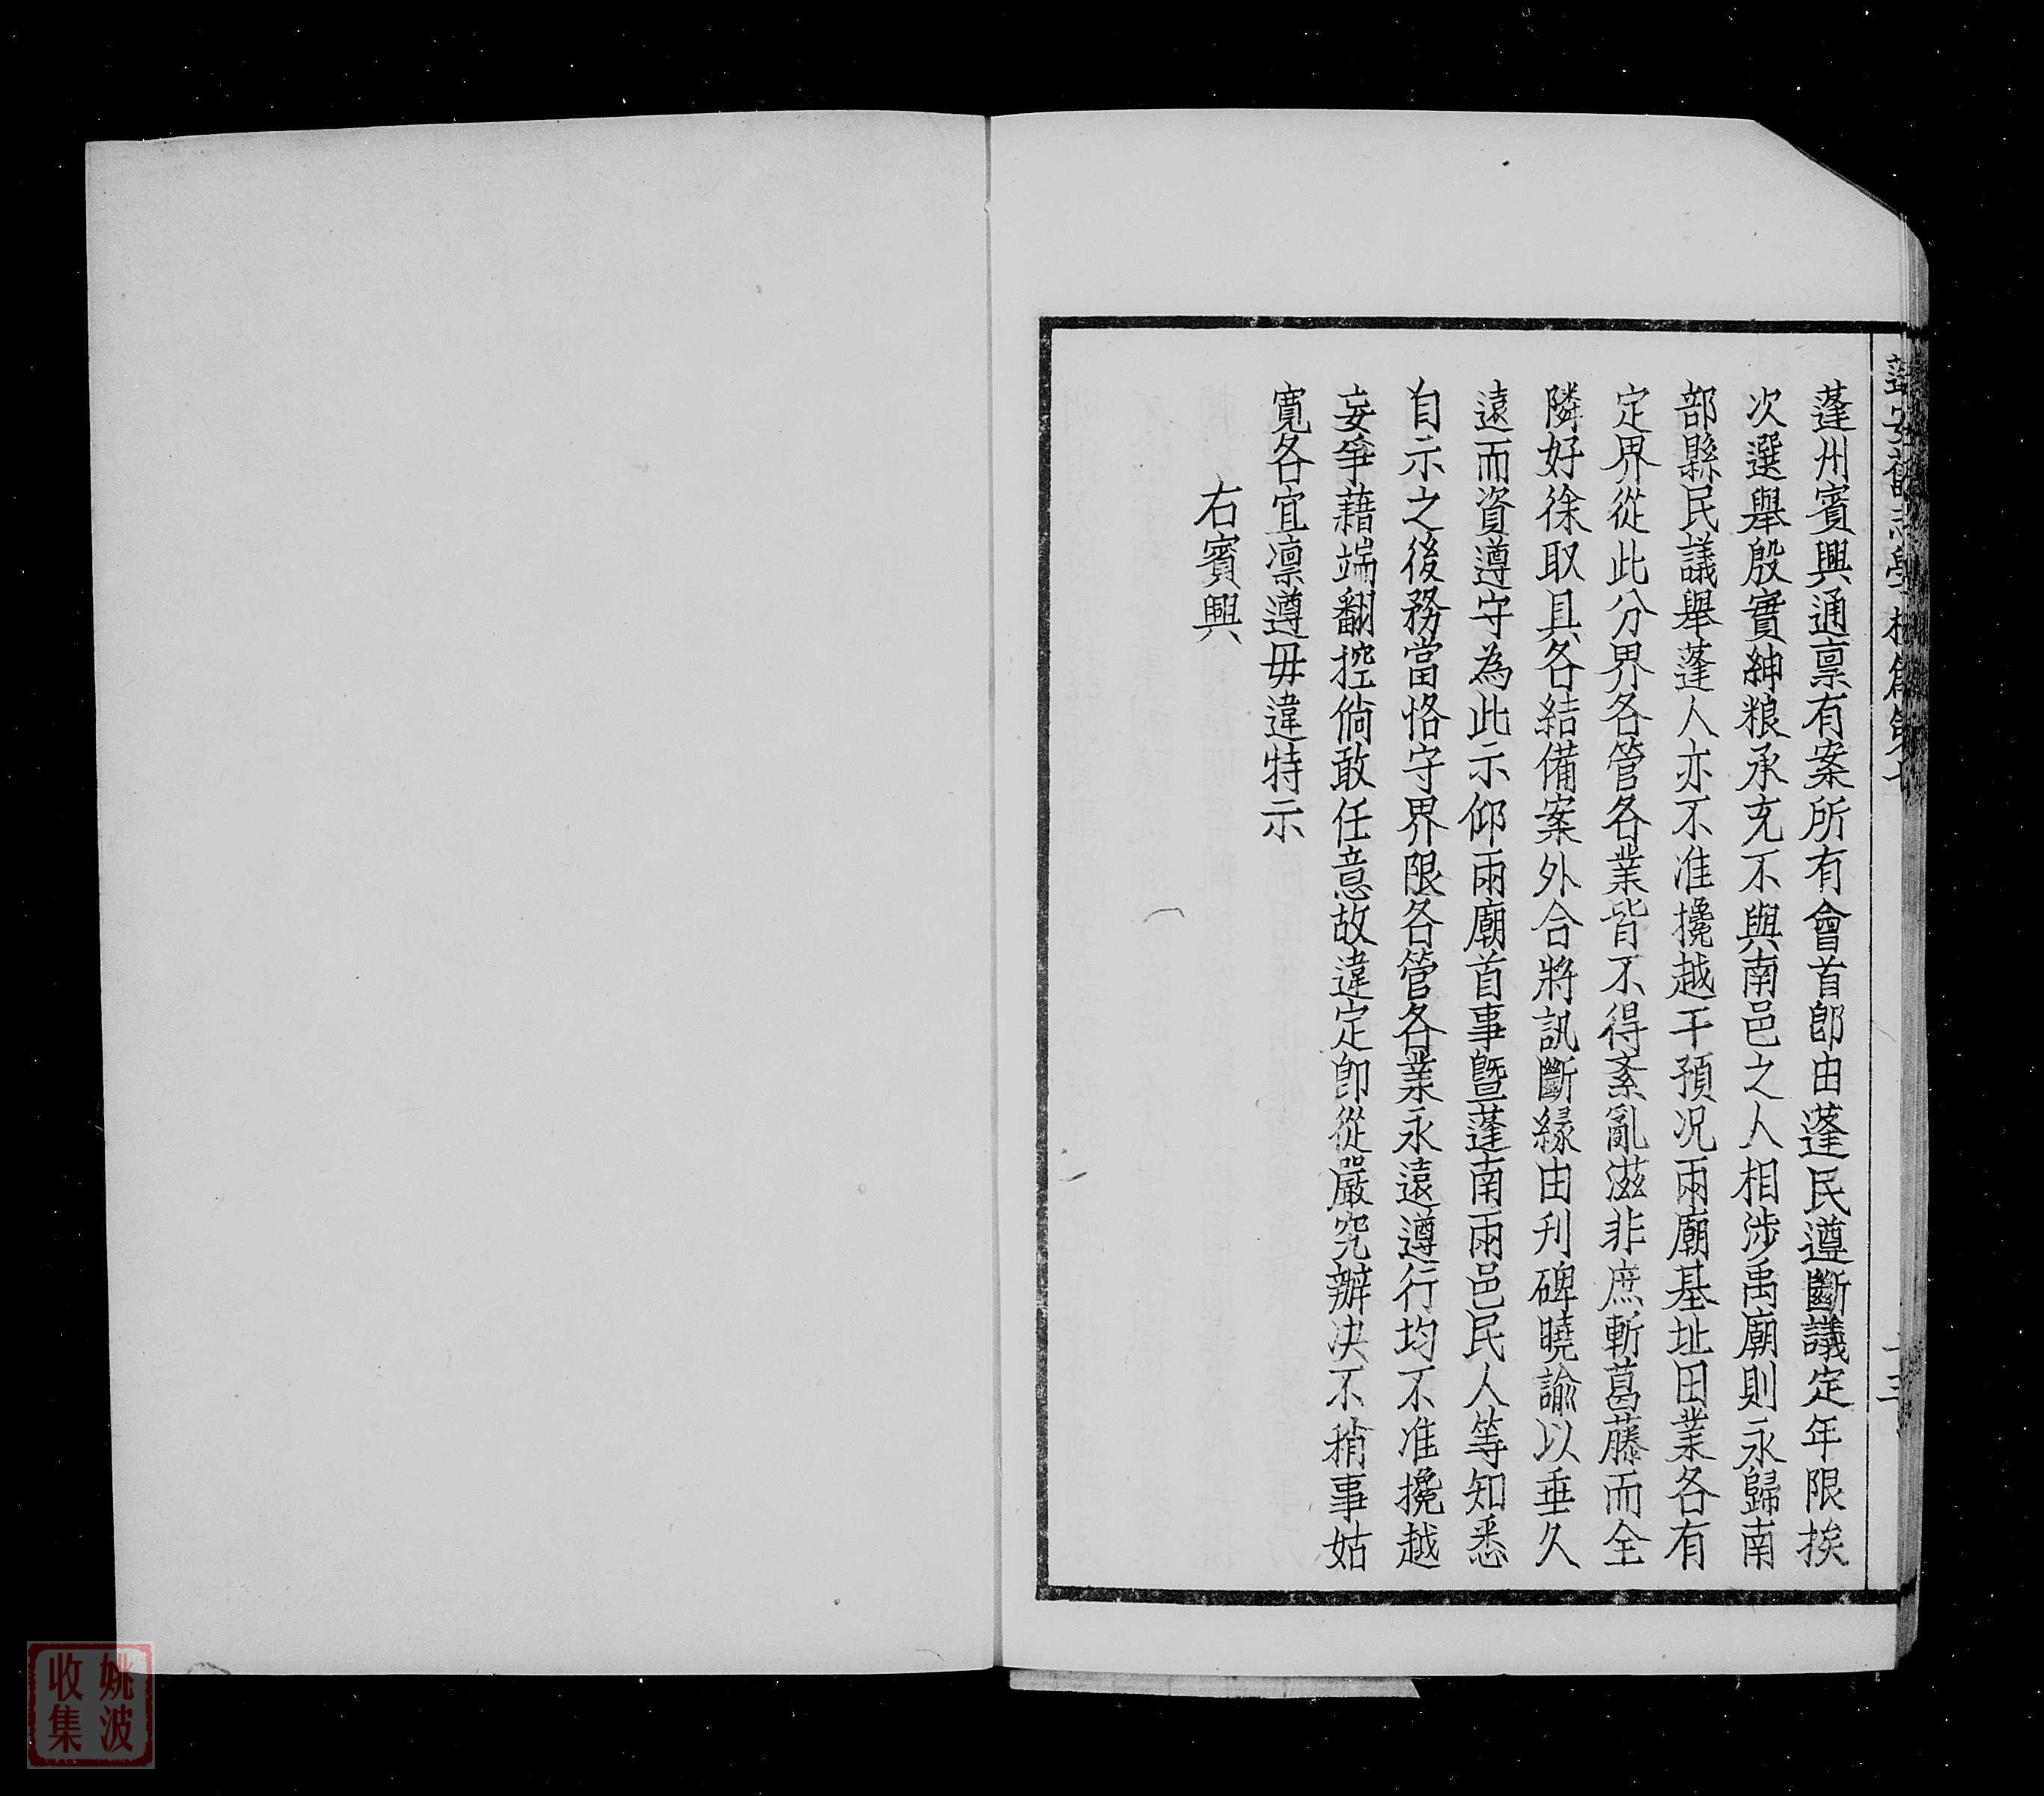 蓬州賓興通禀有案所有會首卽由蓬民遵斷議定年限挨
次選舉殷實紳粮承充不與南邑之人相涉禹廟則永歸南
部縣民議舉蓬人亦不准攙越干預况兩廟基址田業各有
定界從此分界各管各業皆不得紊亂滋非庶斬葛藤而全
隣好徐取具各結備案外合將訊斷緣由刋碑曉諭以垂久
遠而資遵守為此示仰兩廟首事曁蓬南兩邑民人等知悉
自示之後務當恪守界限各管各業永遠遵行均不准攙越
妄爭藉端翻控倘敢任意故違定卽從嚴究辦决不稍事姑
寬各宜凛遵毋違特示
右賓興
姚波
收集